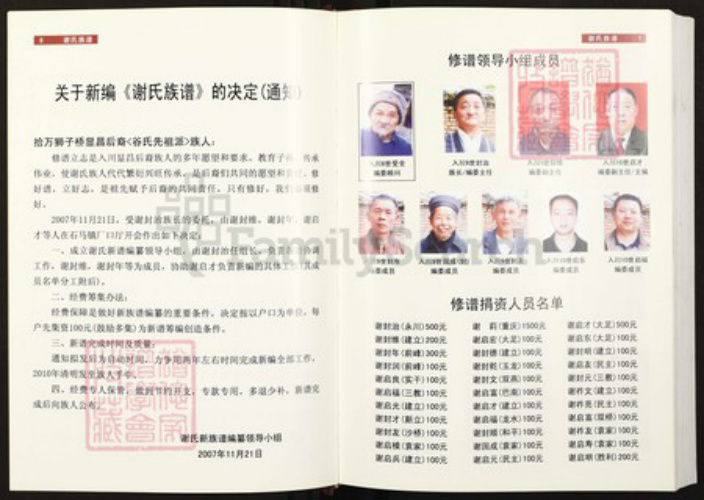 6 谢氏族谱
关于新编《谢氏族谱》的决定(通知)
拾万狮子桥显昌后裔<谷氏先祖派>族人:
修谱立志是入川显昌后裔族人的多年愿望和要求。教育子孙，传承
伟业，使谢氏族人代代繁衍兴旺传承，是后裔们共同的愿望和责任。修
好谱，立好志，是祖先赋予后裔的共同责任。只有修好，我们
好。
2007年11月21日，受谢封治族长的委托，由谢封维、谢封年、谢启
才等人在石马镇厂口厅开会作出如下决定:
一、成立谢氏新谱编纂领导小组，由谢封治任组长，负责组织协调
工作，谢封维、谢封年等为成员，协助谢启才负责新编的具体工作(其成
员名单分工附后)。
二、经费筹集办法:
经费保障是做好新族谱编纂的重要条件，决定按以户口为单位，每
户先集资100元(鼓励多集)为新谱筹编创造条件。
三、新谱完成时间及质量:
通知拟发后为启动时间，力争用两年左右时间完成新编全部工作，
2010年清明发至族人手中。
四、经费专人保管，做到节约开支，专款专用，多退少补，新谱完
成后向族人公布。
谢氏新族谱编纂领导小组
2007年11月21日
谢氏族谱 7
修谱领导小组成员
入川8世受全 入川9世封治 入川9世封维 入川10世启才
编委顾问 族长/编委主任 编委副主任 编委副主任/主编
编委成员 编委成员 编委成员 编委成员 编委成员
修谱捐资人员名单
谢封治(永川)500元 谢 莉(重庆)1500元 谢启才(大足)500元
谢封维(建立)200元 谢启宏(大足)100元 谢启东(大足)100元
谢封年(前峰)300元 谢封德(建立)100元 谢封明(建立)100元
谢封润(前峰)100元 谢封乾(玉龙)100元 谢启友(民主)100元
谢启良(实干)100元 谢封文(双燕)100元 谢封元(三教)100元
谢启福(三教)100元 谢启富(巴南)100元 谢祚文(建立)100元
谢启光(建立)100元 谢启才(建立)100元 谢祚亮(民主)100元
谢封才(新立)100元 谢启福(龙水)100元 谢启富(双桥)100元
谢封友(沙桥)100元 谢封顺(和平)100元 谢祚友(袁家)100元
谢启模(袁家)100元 谢国成(袁家)100元 谢启寿(袁家)100元
谢启兵(建立)100元 谢启元(民主)100元 谢启明(胜利)200元
FamilySearch